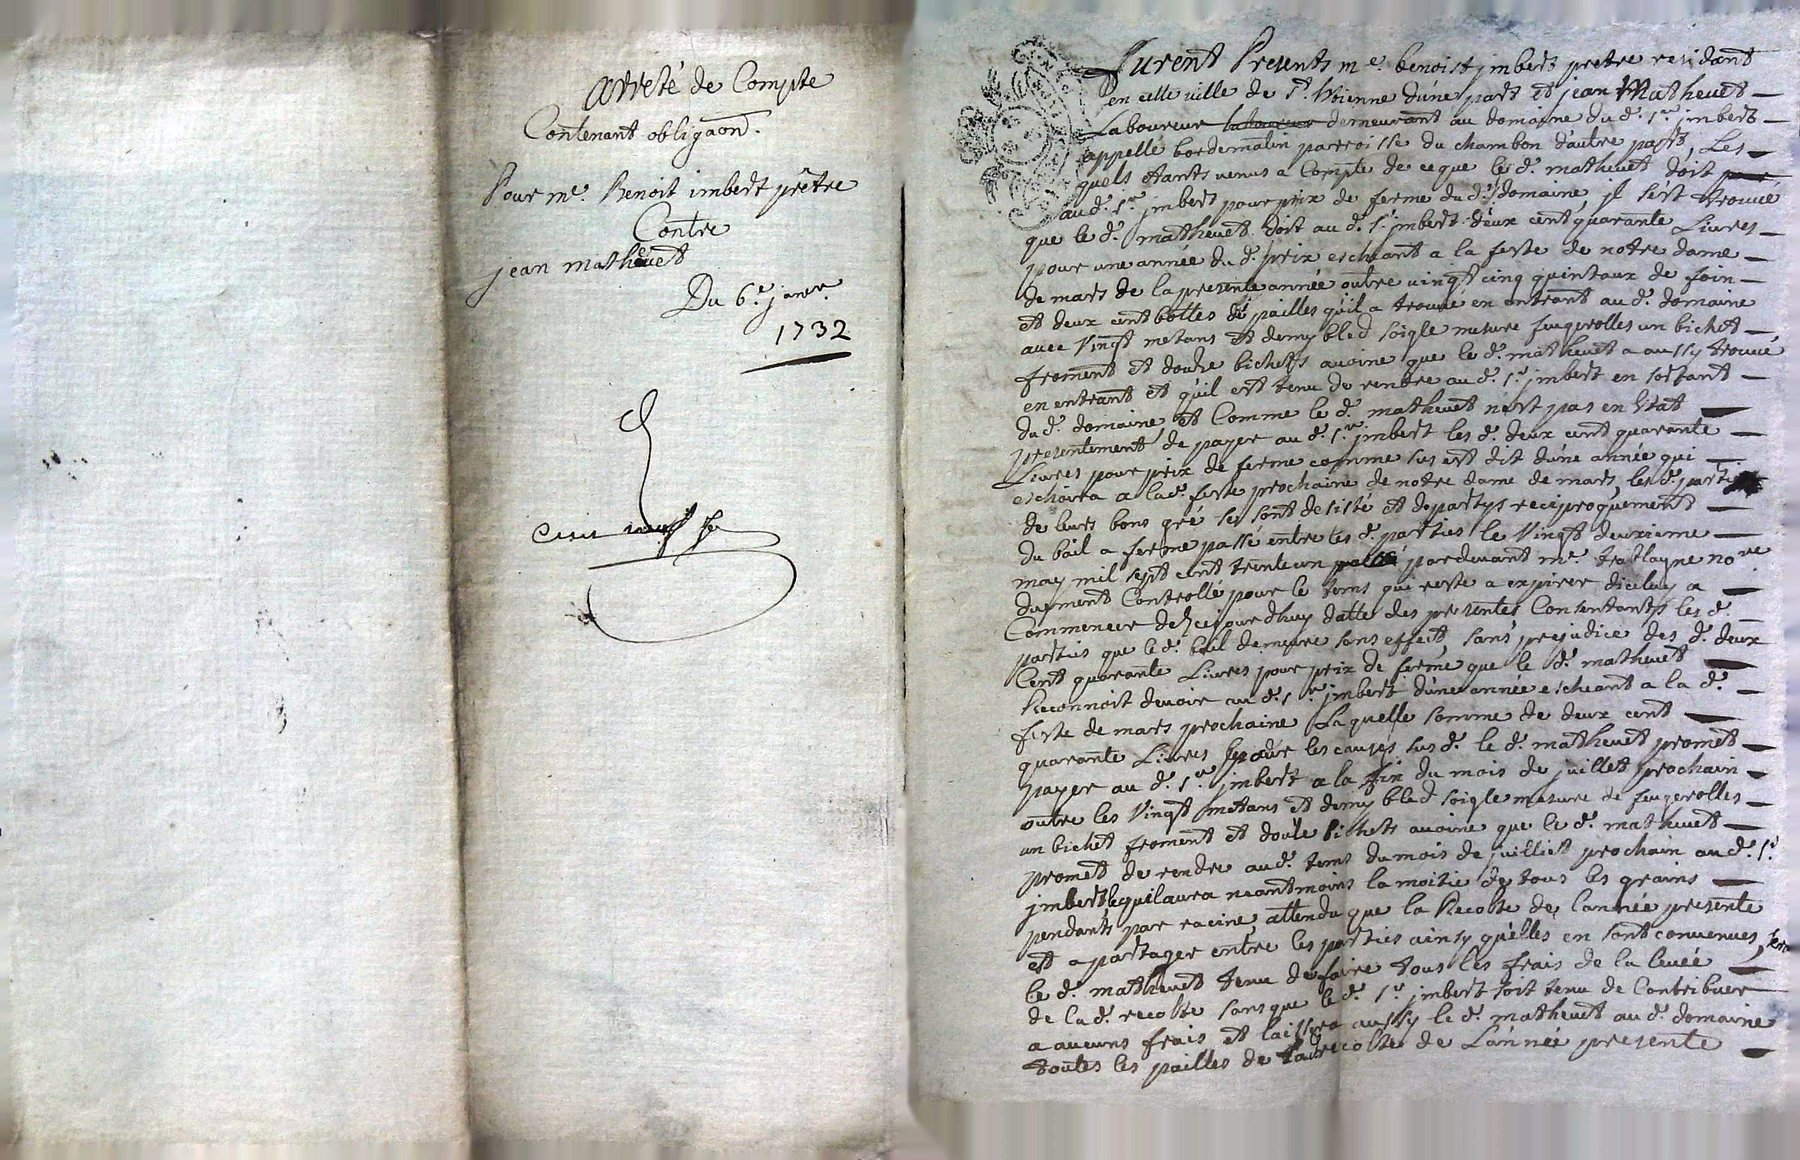 arreté de Compte
Contenant obligaon.
Pour me. Benoit imbert prêtre
Contre
jean matheuet
Du 6e. janer.
1732
Furent Presents me. benoist jmbert pretre residant
en cette ville de St. Etienne d'une part et jean Matheuet
Laboureur laboureur demeurant au domaine du d. sr. jmbert
appellé bordematin parroisse du chambon d'autre part, Les
quels étants venus a Compte de ce que le d. matheuet doit
au d. sr. jmbert pour prix de ferme du d. domaine, jl s'est trouué
que le d. matheuet doit au d. sr. jmbert deux cent quarante Liures
pour une année du d. prix escheant a la feste de notre dame
de mars de la presente année outre uingt cinq quintaux de foin
et deux cent bottes de pailles qu'il a trouué en entrant au d. domaine
auec Vingt metans et demy bled soigle mesure feugerolles un bichet
froment et douze bichets auoine que le d. matheuet a aussy trouué
en entrant et qu'il est tenu de rendre au d. sr. jmbert en sortant
du d. domaine et Comme le d. matheuet n'est pas en Etat
presentement de payer au d. sr. jmbert les d. deux cent quarante
Liures pour prix de ferme comme sus est dit d'une année qui
eschoira a la d. feste prochaine de notre dame de mars, les d. parti
de leurs bons gré se sont desisté et departys reciproquement
du bail a ferme passé entre les d. parties le Vingt deuxieme
may mil sept cent trente un passé pardeuant me. no.re
duement Controllé pour le tems qui reste a expirer d'iceluy a
Commencer dez cejourdhuy datte des presentes Consentants les d.
parties que le d. bail demeure sans effect, sans prejudice des d. deux
Cent quarante Liures pour prix de ferme que le d. matheuet
Reconnoit deuoir au d. sr. jmbert d'une année escheant a la d.
feste de mars prochaine Laquelle somme de deux cent
quarante Liures pour les causes sus d. le d. matheuet promet
payer au d. sr. jmbert a la fin du mois de juillet prochain
outre les Vingt metans et demy bled soigle mesure de feugerolles
un bichet froment et douze bichets auoine que le d. matheuet
promet de rendre au d. tems du mois de juilliet prochain au d. sr.
jmbert lequel aura neantmoins la moitie de tous les grains
pendants par racine, attendu que la Recolte de l'année presente
est a partager entre les parties ainsy qu'elles en sont conuenues, sera
le d. matheuet tenu de faire tous les frais de la leuée
de la d. recolte sans que le d. sr. jmbert soit tenu de Contribuer
a aucuns frais et laissera aussy le d. matheuet au d. domaine
toutes les pailles de la recolte de L'année presente